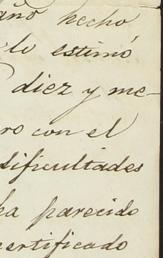 año hecho
lo estimó
diez y me-
ro con el
dificultades
ha parecido
certificado